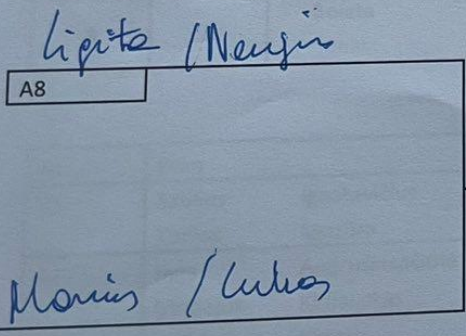 Ligita /Nerijus
A8
Marius /Lukas